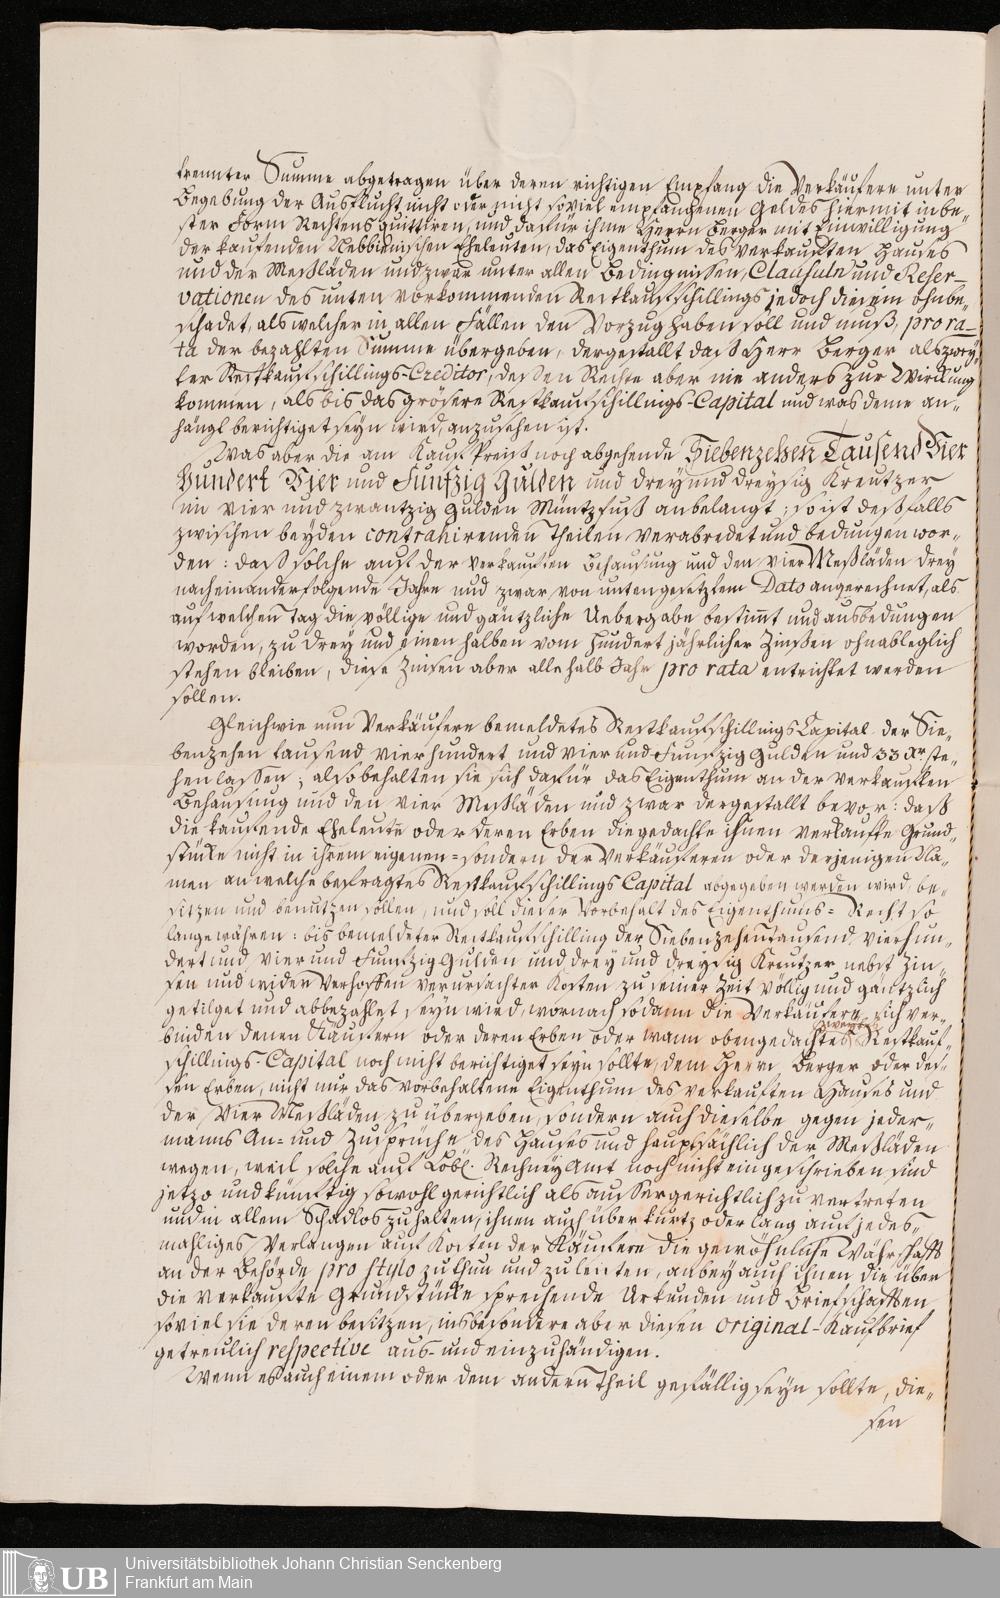 trennter Summe abgetragen über deren richtigen Empfang die Verkäufere unter
Begebung der Ausflucht nicht oder nicht soviel empfangenen Geldes hiermit inbe-
ster Form Rechtens quittiren, und dafür ihme Herrn Berger mit Einwilligung
der kaufenden Eheleuten, das Eigenthum des verkauften Hauses
und der Meßläden und zwar unter allen Bedingnissen, Clausuln und Reser-
vationen des unten vorkommenden Restkaufschillings jedoch diesem ohnbe-
schadet, als welcher in allen Fällen den Vorzug haben soll und muß, pro ra-
ta der bezahlten Summe übergeben, dergestallt daß Herr Berger als zwey-
ter Restkaufschillings-Creditor, dessen Rechte aber nie anders zur Würckung
kommen, als bis das grösere Restkaufschillings-Capital und was deme an-
hängt berichtiget seyn wird, anzusehen ist.
Was aber die am Kauf Preiß noch abgehende Siebenzehen Tausend Vier
Hundert Vier und Funfzig Gulden und drey und dreysig Kreutzer
im vier und zwantzig Gulden Müntzfuß anbelangt; so ist deßfalls
zwischen beyden contrahirenden Theilen verabredet und bedungen wor-
den: daß solche auf der verkauften Behausung und den vier Meßläden drey
nacheinanderfolgende Jahre und zwar von unten gesetztem Dato angerechnet, als
auf welchen Tag die völlige und gäntzliche Uebergabe bestimt und ausbedungen
worden, zu drey und einen halben vom Hundert jährlicher Zinßen ohnableglich
stehen bleiben, diese Zinsen aber alle halb Jahr pro rata entrichtet werden
sollen.
Gleichwie nun Verkäufere bemeldetes Restkaufschillings Capital der Sie-
benzehen tausend vierhundert und vier und Funfzig Gulden und 33 Xr ste-
hen lassen; also behalten sie sich dafür das Eigenthum an der verkauften
Behausung und den vier Meßläden und zwar dergestallt bevor: daß
die kaufende Eheleute oder deren Erben die gedachte ihnen verkaufte Grund-
stücke nicht in ihrem eigenen = sondern der Verkäuferen oder derjenigen Na-
men an welche befragtes Restkaufschillings Capital abgegeben werden wird, be-
sitzen und benutzen sollen, und soll dieser Vorbehalt des Eigenthums = Recht so
lange währen: bis bemeldeter Restkaufschilling der Siebenzehentausend vierhun-
dert und vier und Funfzig Gulden und drey und dreysig Kreutzer nebst Zin-
sen und wider Verhoffen verursachter Kosten zu seiner Zeit völlig und gäntzlich
getilget und abbezahlet seyn wird, wornach sodann die Verkäufere sich ver-
binden denen Käufern oder deren Erben oder wann obengedachtes zweytes Restkauf-
schillings-Capital noch nicht berichtiget seyn sollte, dem Herrn Berger oder des-
sen Erben, nicht nur das vorbehaltene Eigenthum des verkauften Hauses und
der vier Meßläden zu übergeben, sondern auch dieselbe gegen jeder-
manns An- und Zusprüche des Hauses und hauptsächlich der Meßläden
wegen, weil solche auf Löbl. Rechney Amt noch nicht eingeschrieben sind
jetzo und künftig sowohl gerichtlich als aussergerichtlich zu vertreten
und in allem Schadlos zu halten, ihnen auch über kurtz oder lang auf jedes-
mahliges Verlangen auf Kosten der Käufere die gewöhnliche Währschafft
an der Behörde pro stylo zu thun und zu leisten, anbey auch ihnen die über
die verkaufte Grundstücke sprechende Urkunden und Briefschafften
soviel sie deren besitzen, insbesondere aber diesen original-Kaufbrief
getreulich respective aus- und einzuhändigen.
Wenn es auch einem oder dem andern Theil gefällig seyn sollte, die-
sen
UB
Universitätsbibliothek Johann Christian Senckenberg
Frankfurt am Main